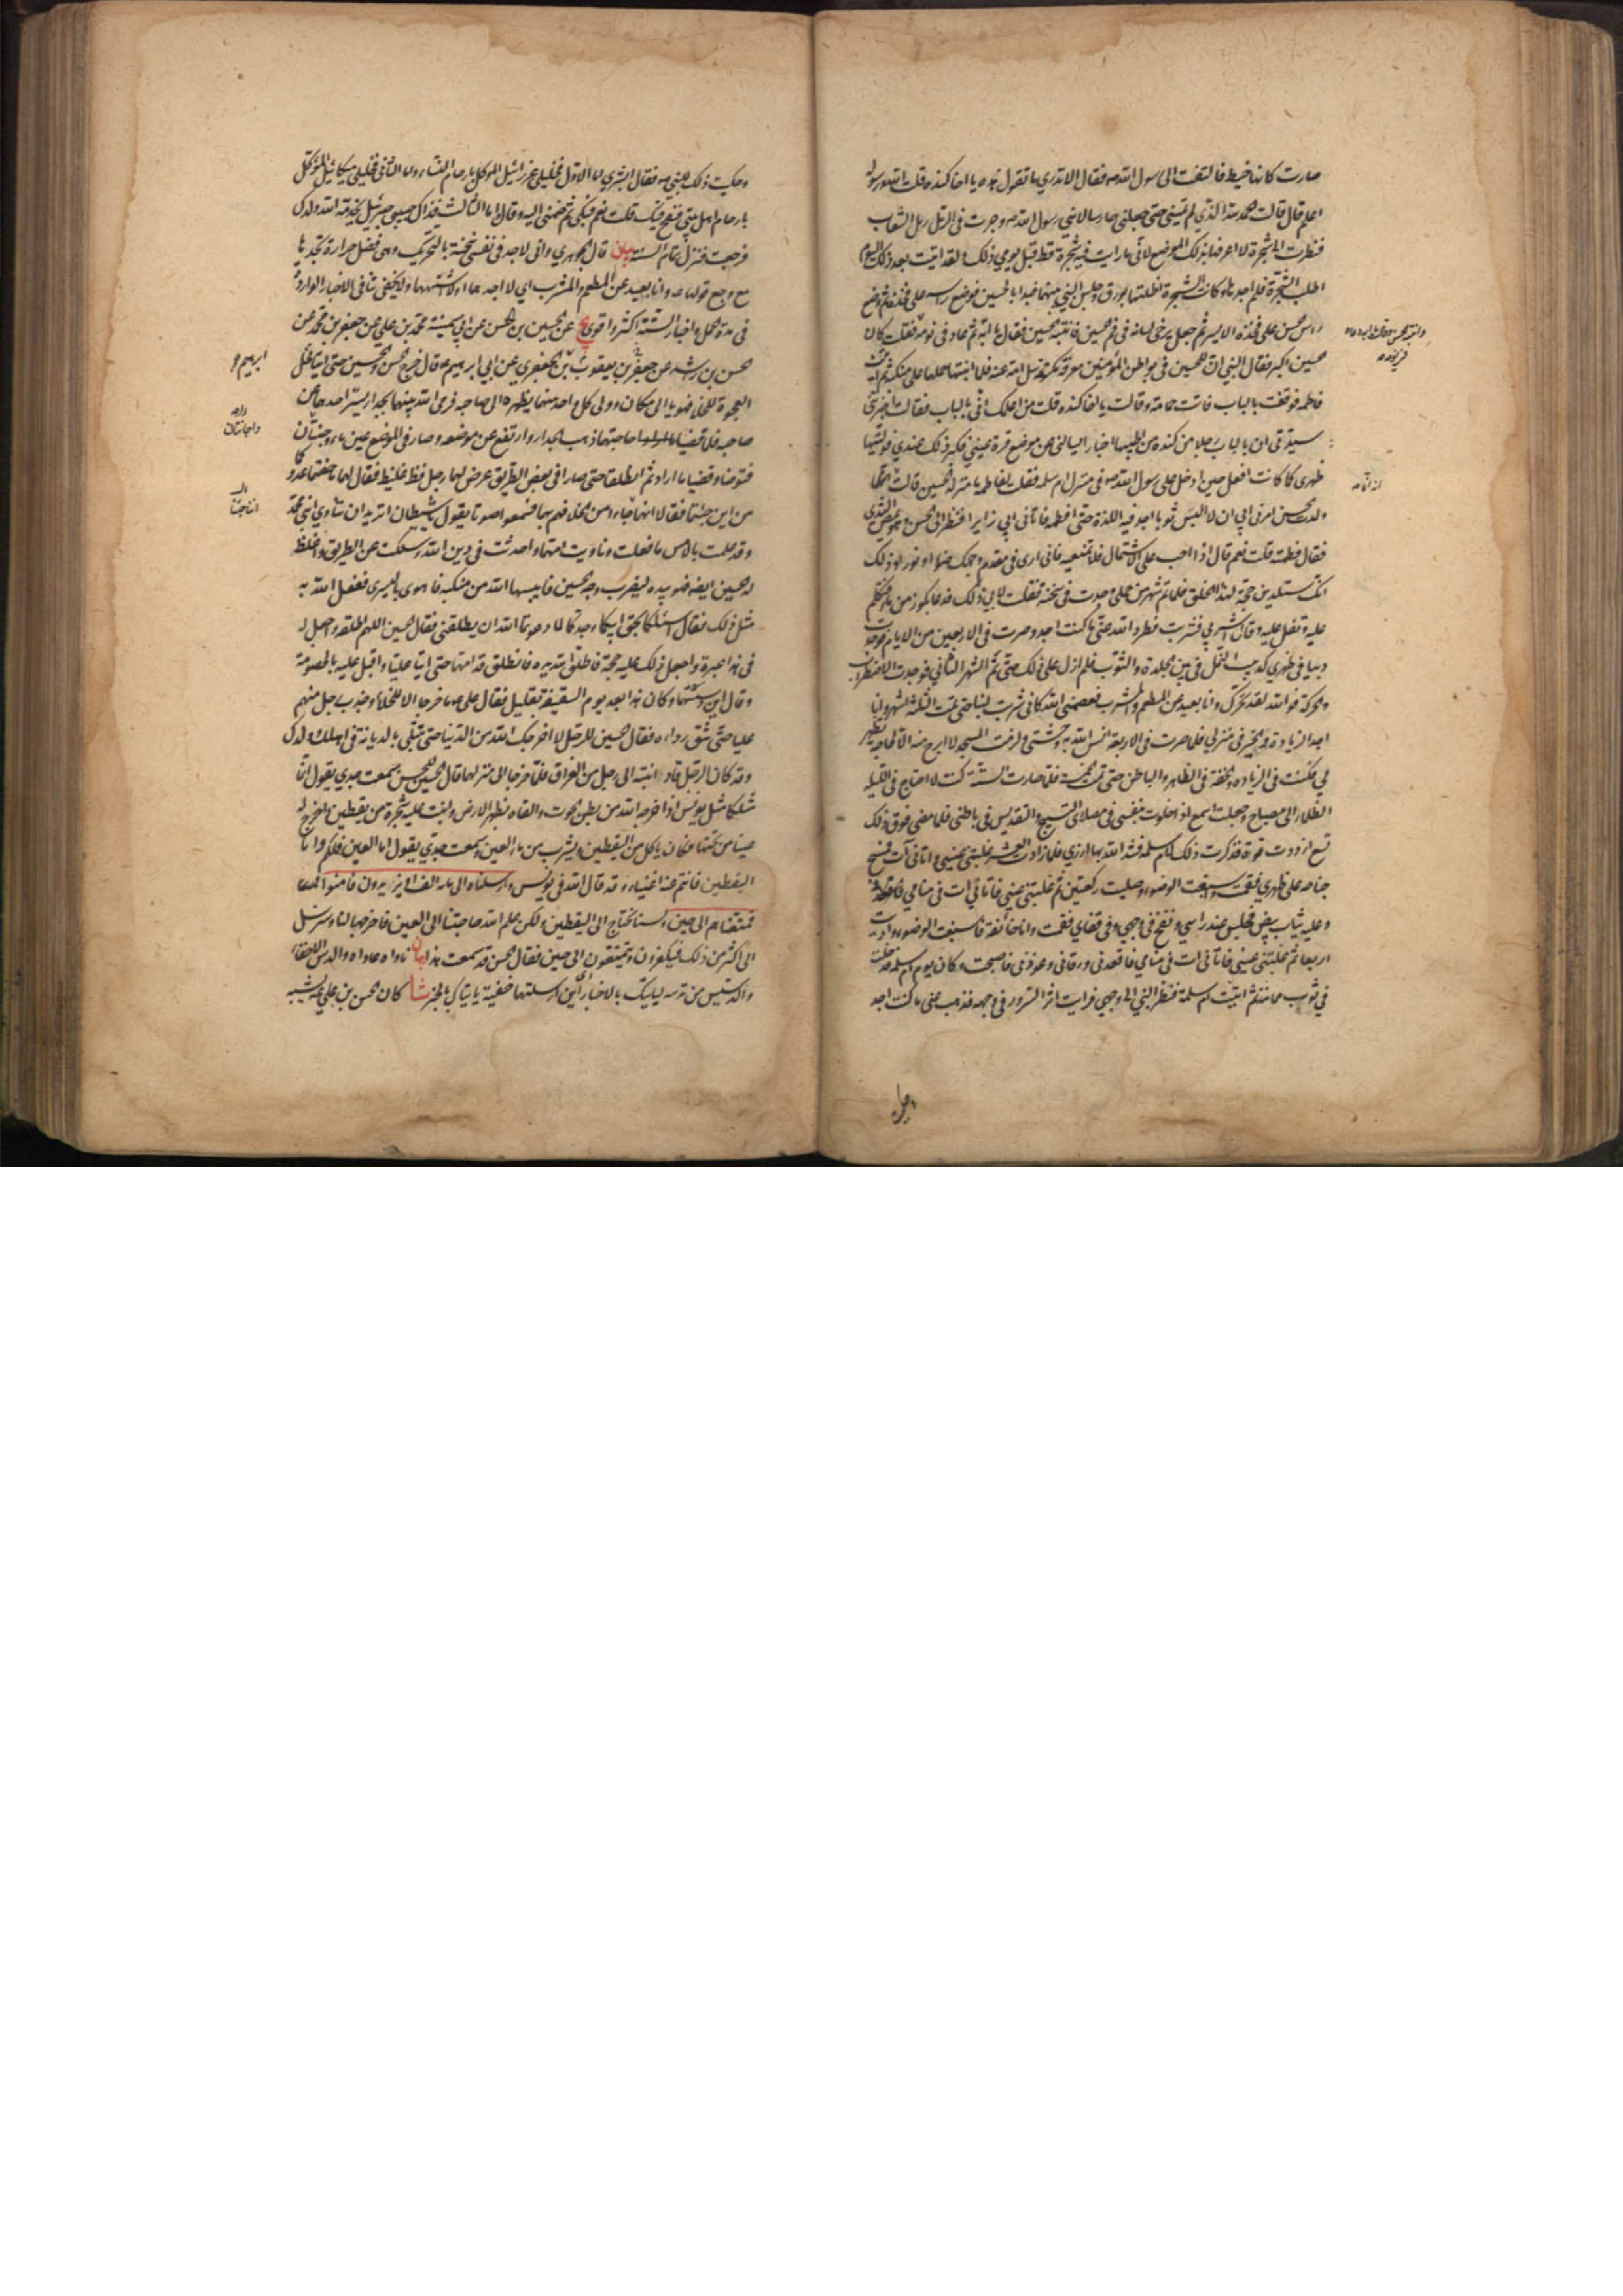 صارت كانها خيط فالتفت الى رسول الله ص فقال الا تدري ما تقول هذه يا اخا كنده قلت الله ورسوله
اعلم قال قالت الحمد لله الذي لم يمتني حتى جعلني حارسا لابني رسول الله ص وجرت في الرمل رمل الشعاب
فنظرت الى شجرة لا اعرفها بذلك الموضع لاني ما رايت فيه شجرة قط قبل يومي ذلك ولقد اتيت بعد ذلك اليوم
اطلب الشجرة فلم اجدها وكانت الشجرة اظلتهما بورق وجلس النبي بينهما فبدا بالحسين فوضع راسه على فخذه ثم وضع
راس الحسن على فخذه الايسر ثم جعل يرخى لسانه في فم الحسين فانتبه الحسين فقال يا ابه ثم عاد في نومه فقلت كان
الحسين اكبر فقال النبي ان للحسين في بواطن المؤمنين معرفة مكتومة سل امه عنه فلما انتبها حملهما على منكبه ثم اتيت
فاطمة فوقفت بالباب فاتت حمامة وقالت يا اخا كنده قلت من اعلمك اني بالباب فقالت اخبرتني
سيدتي ان بالباب رجلا من كنده من اطيبها اخبارا يسالني عن موضع قرة عيني فكبر ذلك عندي فوليتها
ظهري كما كنت افعل حين ادخل على رسول الله ص في منزل ام سلمه فقلت لفاطمه ما منزلة الحسين قالت
ولدت الحسن امرني ابي ان لا البس ثوبا اجد فيه اللذة حتى افطمه فاتاني ابي زايرا فنظر الى الحسن وهو يمص الثدي
فقال فطمته قلت نعم قال اذا احب علي الاشتمال فلا تمنعيه فاني ارى في مقدم وجهك ضوءا ونورا وذلك
انك ستلدين حجة لهذا الخلق فلما تم شهر من حملي وجدت في سخنة فقلت لابي ذلك فدعا بكوز من ماء فتكلم
عليه وتفل عليه وقال اشربي فشربت فطرد الله عني ما كنت اجد وصرت في الاربعين من الايام فوجدت
دبيبا في ظهري كدبيب النمل في بين الجلدة والثوب فلم ازل على ذلك حتى تم الشهر الثاني فوجدت الاضطراب
والحركة فوالله لقد تحرك وانا بعيد عن المطعم والمشرب فعصمني الله كاني شربت لبنا حتى تمت الثلثة اشهر وانا
اجد الزيادة والخير في منزلي فلما صرت في الاربعة انس الله به وحشتي ولزمت المسجد لا ابرح منه الا لحاجة تظهر
لي فكنت في الزياده والخفة في الظاهر والباطن حتى تمت الخمسة فلما صارت الستة كنت لا احتاج في الليله
الظلماء الى مصباح وجعلت اسمع اذا خلوت بنفسي في مصلاى التسبيح والتقديس في باطني فلما مضى فوق ذلك
تسع ازددت قوة فذكرت ذلك لام سلمه فشد الله بها ازري فلما زادت العشر غلبتني عيني واتاني آت فمسح
جناحه على ظهري فقمت واسبغت الوضوء وصليت ركعتين ثم غلبتني عيني فاتاني ات في منامي
وعليه ثياب بيض فجلس عند راسي ونفخ في وجهي وفي قفاي فقمت وانا خائفة فاسبغت الوضوء واديت
اربعا ثم غلبتني عيني فاتاني ات في منامي فاقعدني ورقاني وعوذني فاصبحت وكان يوم ام سلمه فدخلت
في ثوب حمامة ثم اتيت ام سلمة فنظر النبي الى وجهي فرايت اثر السرور في وجهه فذهب عني ما كنت اجد
وحكيت ذلك للنبي ص فقال ابشري اما الاول فخليلي عزرائيل الموكل بارحام النساء واما الثاني فخليلي ميكائيل الموكل
بارحام اهل بيتي فنفخ فيك قلت نعم فبكى ثم ضمني اليه وقال اما الثالث فذاك حبيبي جبرئيل يخدمه الله ولدك
فرجعت فنزل تمام الستة بيان قال الجوهري واني لاجد في نفسي سخنة بالتحريك وهى فضل حرارة تجدها
مع وجع قولها ع وانا بعيد عن المطعم والمشرب اي لا اجدهما ولا اشتهيهما ولا يخفى تنافى الاخبار الواردة
في مدة الحمل واخبار الستة اكثر واقوى يج عن الحسين بن الحسن عن ابي سمينة محمد بن علي عن جعفر بن محمد عن
الحسن بن راشد عن جعفر بن يعقوب بن الجعفري عن ابي ابرهيم ع قال خرج الحسن والحسين حتى اتيا نخل
العجوة للخلاء فهويا الى مكان وولى كل واحد منهما بظهره الى صاحبه فرمى الله بينهما بجدار يستر احدهما عن
صاحبه فلما قضيا حاجتهما ذهب الجدار وارتفع عن موضعه وصار في الموضع عين ماء وجنتان
فتوضاء وقضيا ما ارادا ثم انطلقا حتى صارا في بعض الطريق عرض لهما رجل فظ غليظ فقال لهما ما خفتما عدوكما
من اين جئتما فقالا انهما جاءا من الخلاء فهم بهما فسمعوا صوتا يقول يا شيطان اتريد ان تناوي ابني محمد
وقد علمت بالامس ما فعلت وناويت امهما واحدثت في دين الله وسلكت عن الطريق واغلظ
له الحسين ايضا فهوى بيده ليضرب وجه الحسين فايبسها الله من منكبه فاهوى باليسرى ففعل الله به
مثل ذلك فقال اسئلكما بحق ابيكما وجدكما لما دعوتما الله ان يطلقني فقال الحسين اللهم اطلقه واجعل له
في هذا عبرة واجعل ذلك عليه حجة فاطلق الله يديه فانطلق قدامهما حتى اتيا عليا واقبل عليه بالخصومة
وقال اين دسستهما وكان هذا بعد يوم السقيفة بقليل فقال علي ع ما خرجا الا للخلاء وجذب رجل منهم
عليا حتى شق رداءه فقال الحسين للرجل لا اخرجك الله من الدنيا حتى تبتلى بالدياثة في اهلك وولدك
وقد كان الرجل قاد ابنته الى رجل من العراق فلما خرجا الى منزلهما قال الحسين للحسن سمعت جدي يقول انما
مثلكما مثل يونس اذ اخرجه الله من بطن الحوت والقاه بظهر الارض وانبت عليه شجرة من يقطين واخرج له
عينا من تحتها فكان ياكل من اليقطين ويشرب من ماء العين وسمعت جدي يقول اما العين فلكم واما
اليقطين فانتم عنه اغنياء وقد قال الله في يونس وارسلناه الى مائة الف او يزيدون فامنوا
فمتعناهم الى حين ولسنا نحتاج الى اليقطين ولكن علم الله حاجتنا الى العين فاخرجها لنا وسنرسل
الى اكثر من ذلك فيكفرون ويتمتعون الى حين فقال الحسن قد سمعت هذا بيان ناواه عاداه والدس الاخفاء
والدسيس من تدسه لياتيك بالاخبار اي اين ارسلتهما خفية ياتياك بالخبر شا كان الحسن بن علي ع يشبه